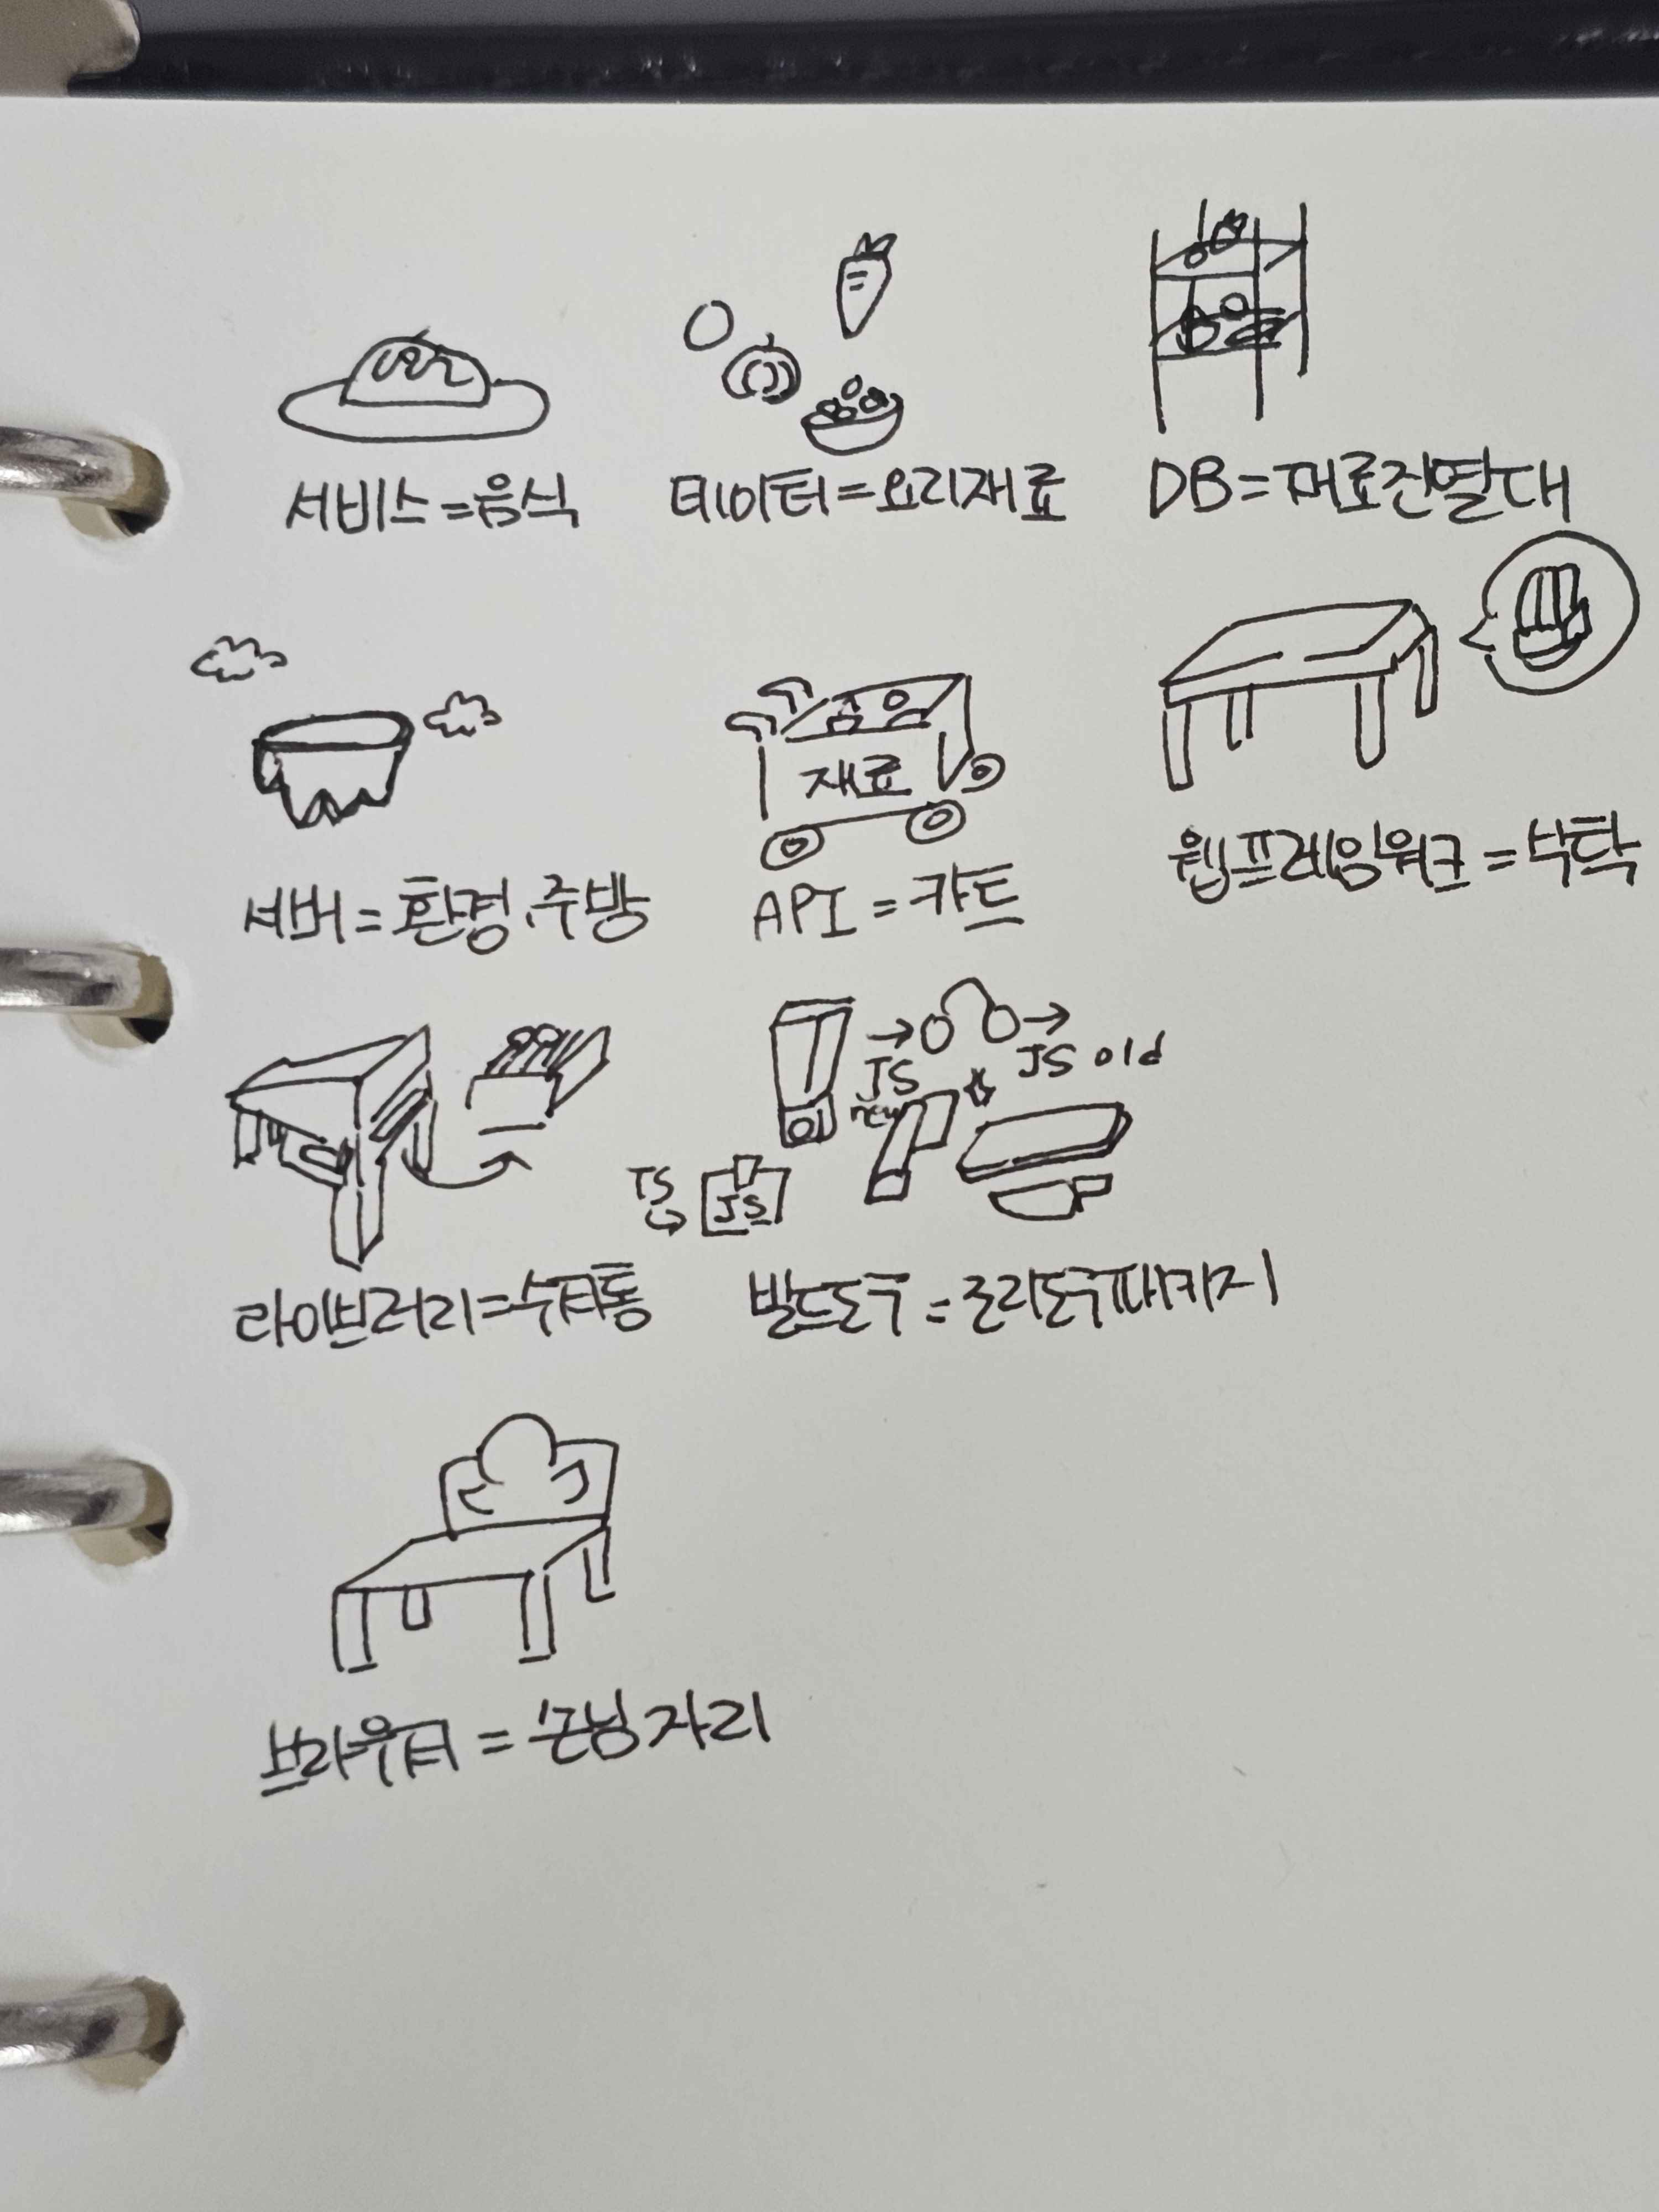 서비스=음식
데이터=요리재료
DB=재료진열대
재료
서버=환경,주방
API=카트
웹프레임워크=식탁
JS
new
JS old
TS
JS
라이브러리=수저통
빌드도구=조리도구패키지
브라우저=손님자리